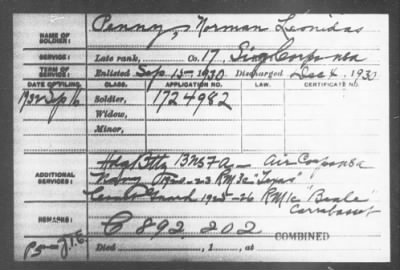 NAME OF SOLDIER: Penny, Norman Leonidas
SERVICE: Late rank, Co. 17, Sig Corps USA
TERM OF SERVICE: Enlisted Sep 15-1930 Discharged Dec 4, 1930
DATE OF FILING. CLASS. APPLICATION NO. LAW. CERTIFICATE NO.
1932 Sep 16 Soldier, 1724982
Widow,
Minor,
ADDITIONAL SERVICES: Hdq Btry 13 Air Corps USA
Navy 1920-23 RM3c "Texas"
Coast Guard 1925-26 RM1c "Beale"
REMARKS: C 892,202
COMBINED
Died , 1 , at